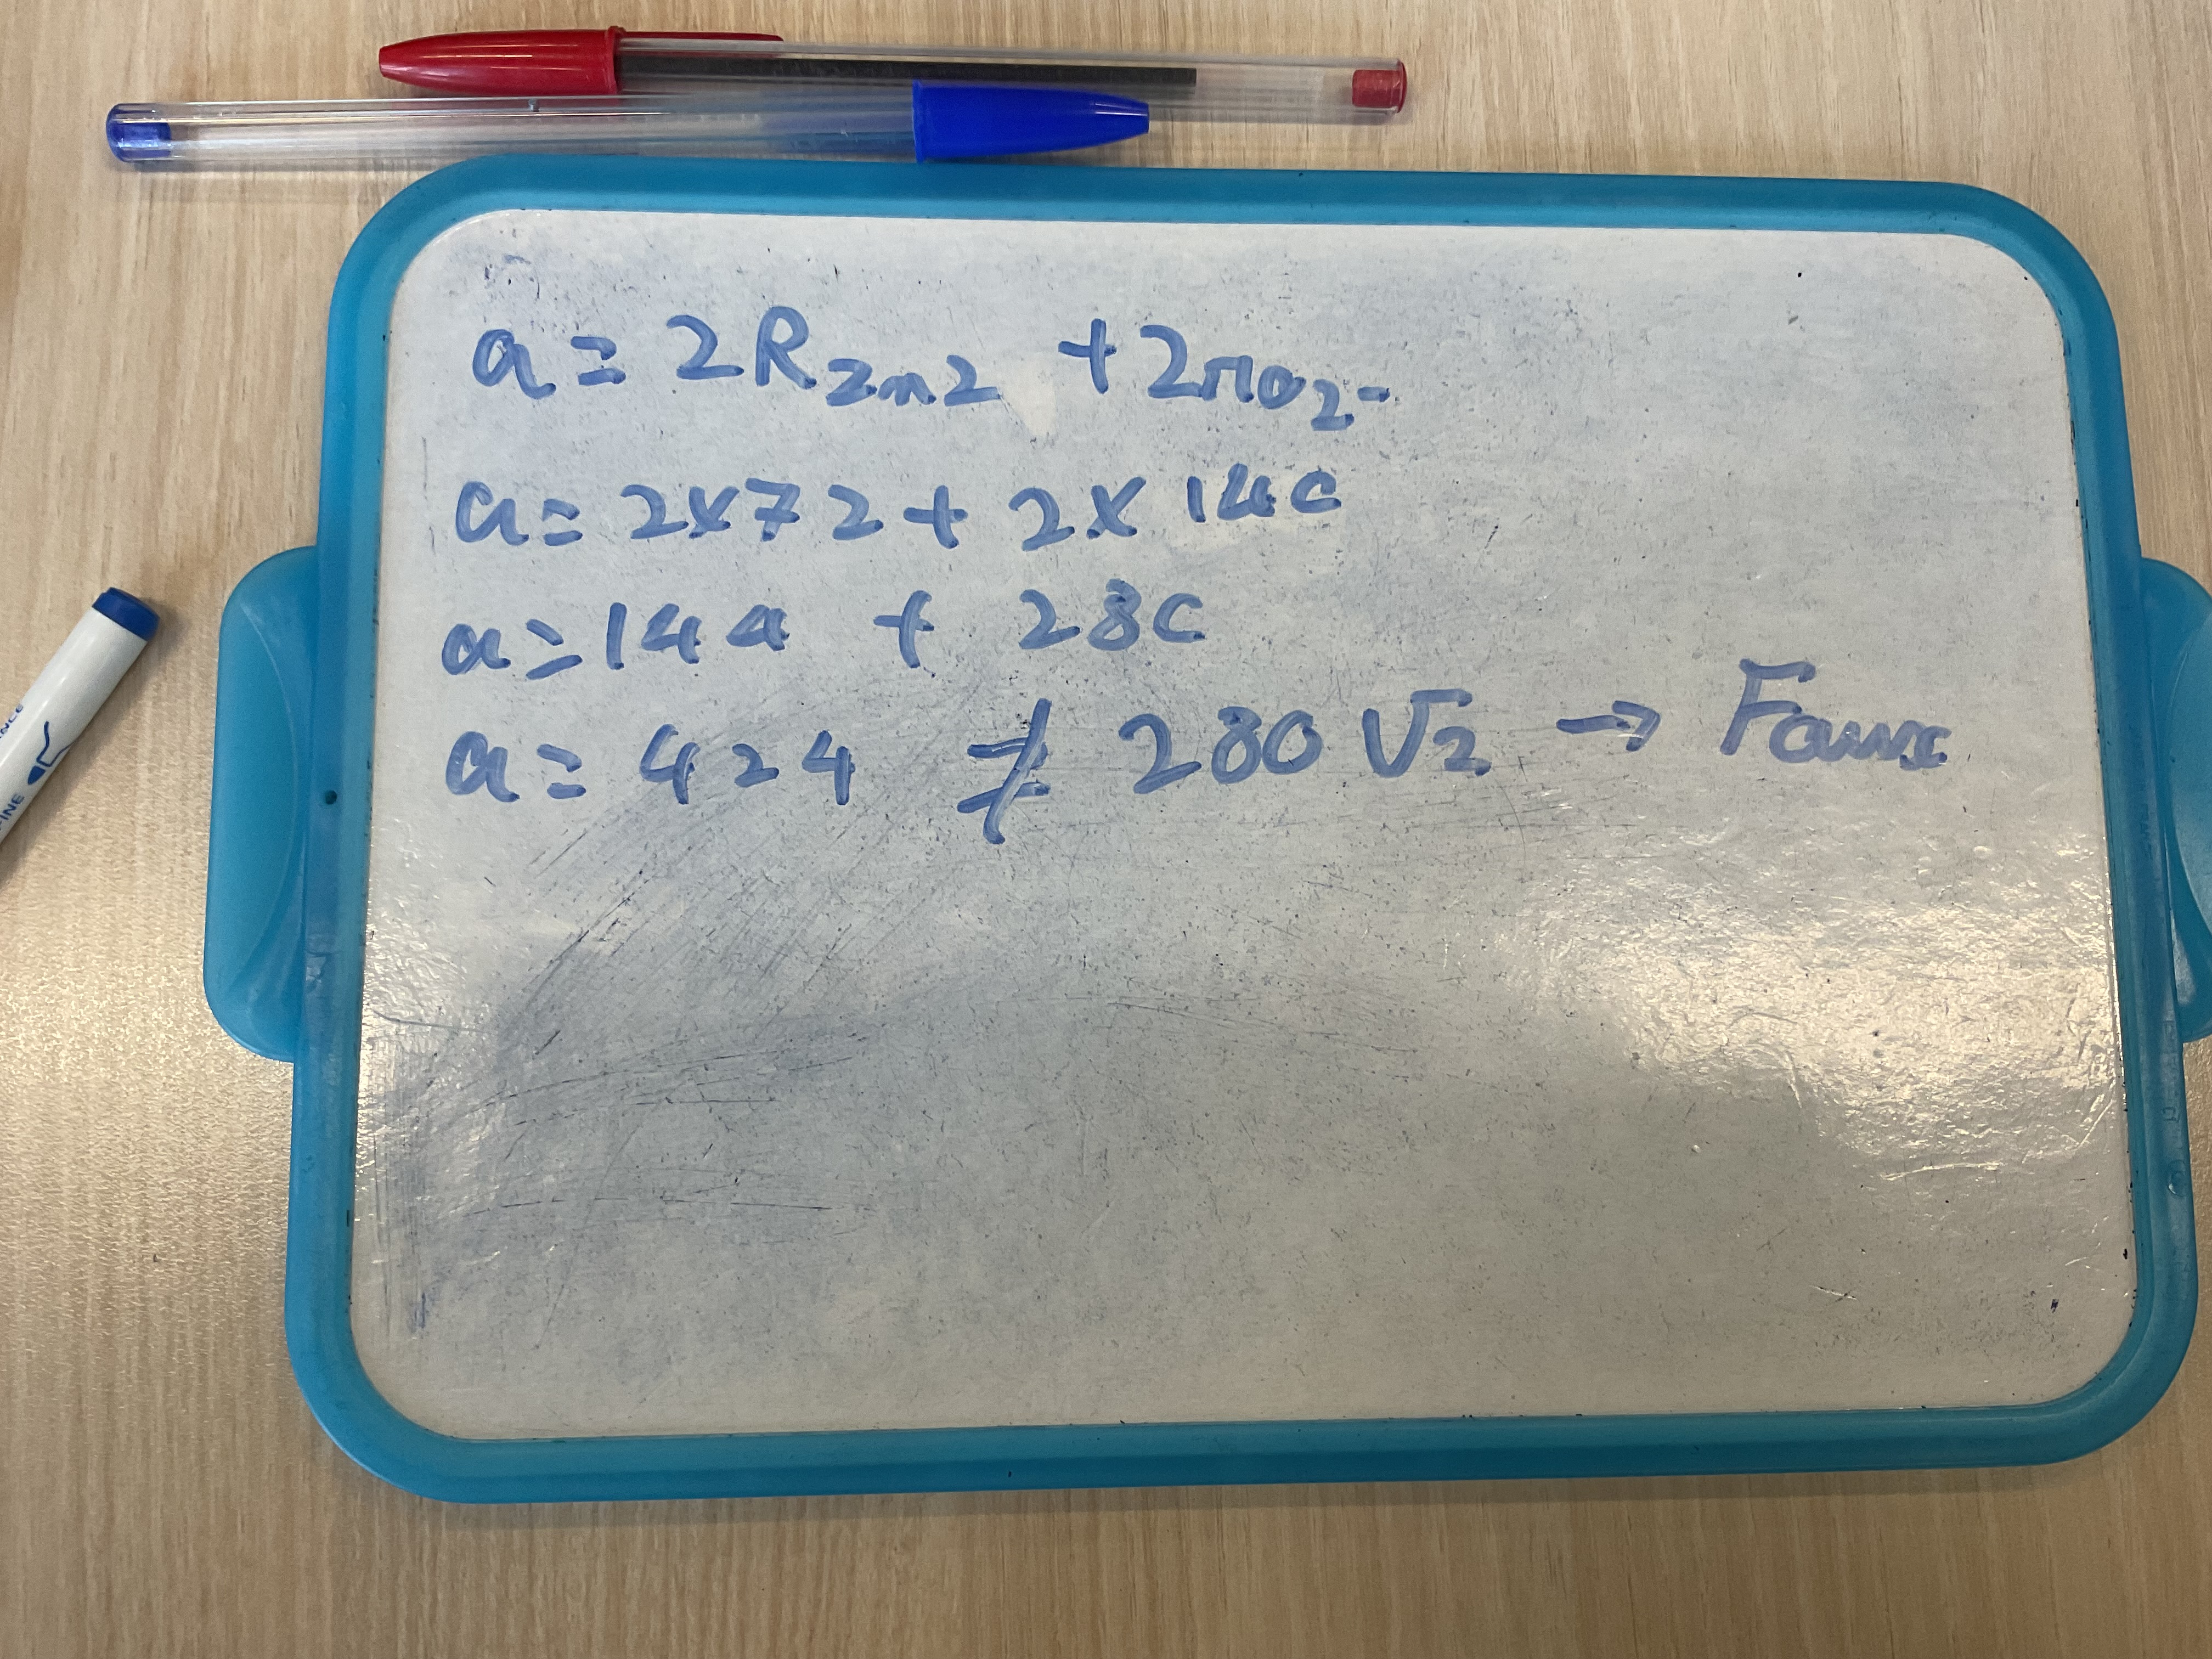 a = 2R Zn2 + 2rO2-
a = 2x72 + 2x 140
a = 144 + 280
a = 424 ≠ 280 √2 → Faux
FINE